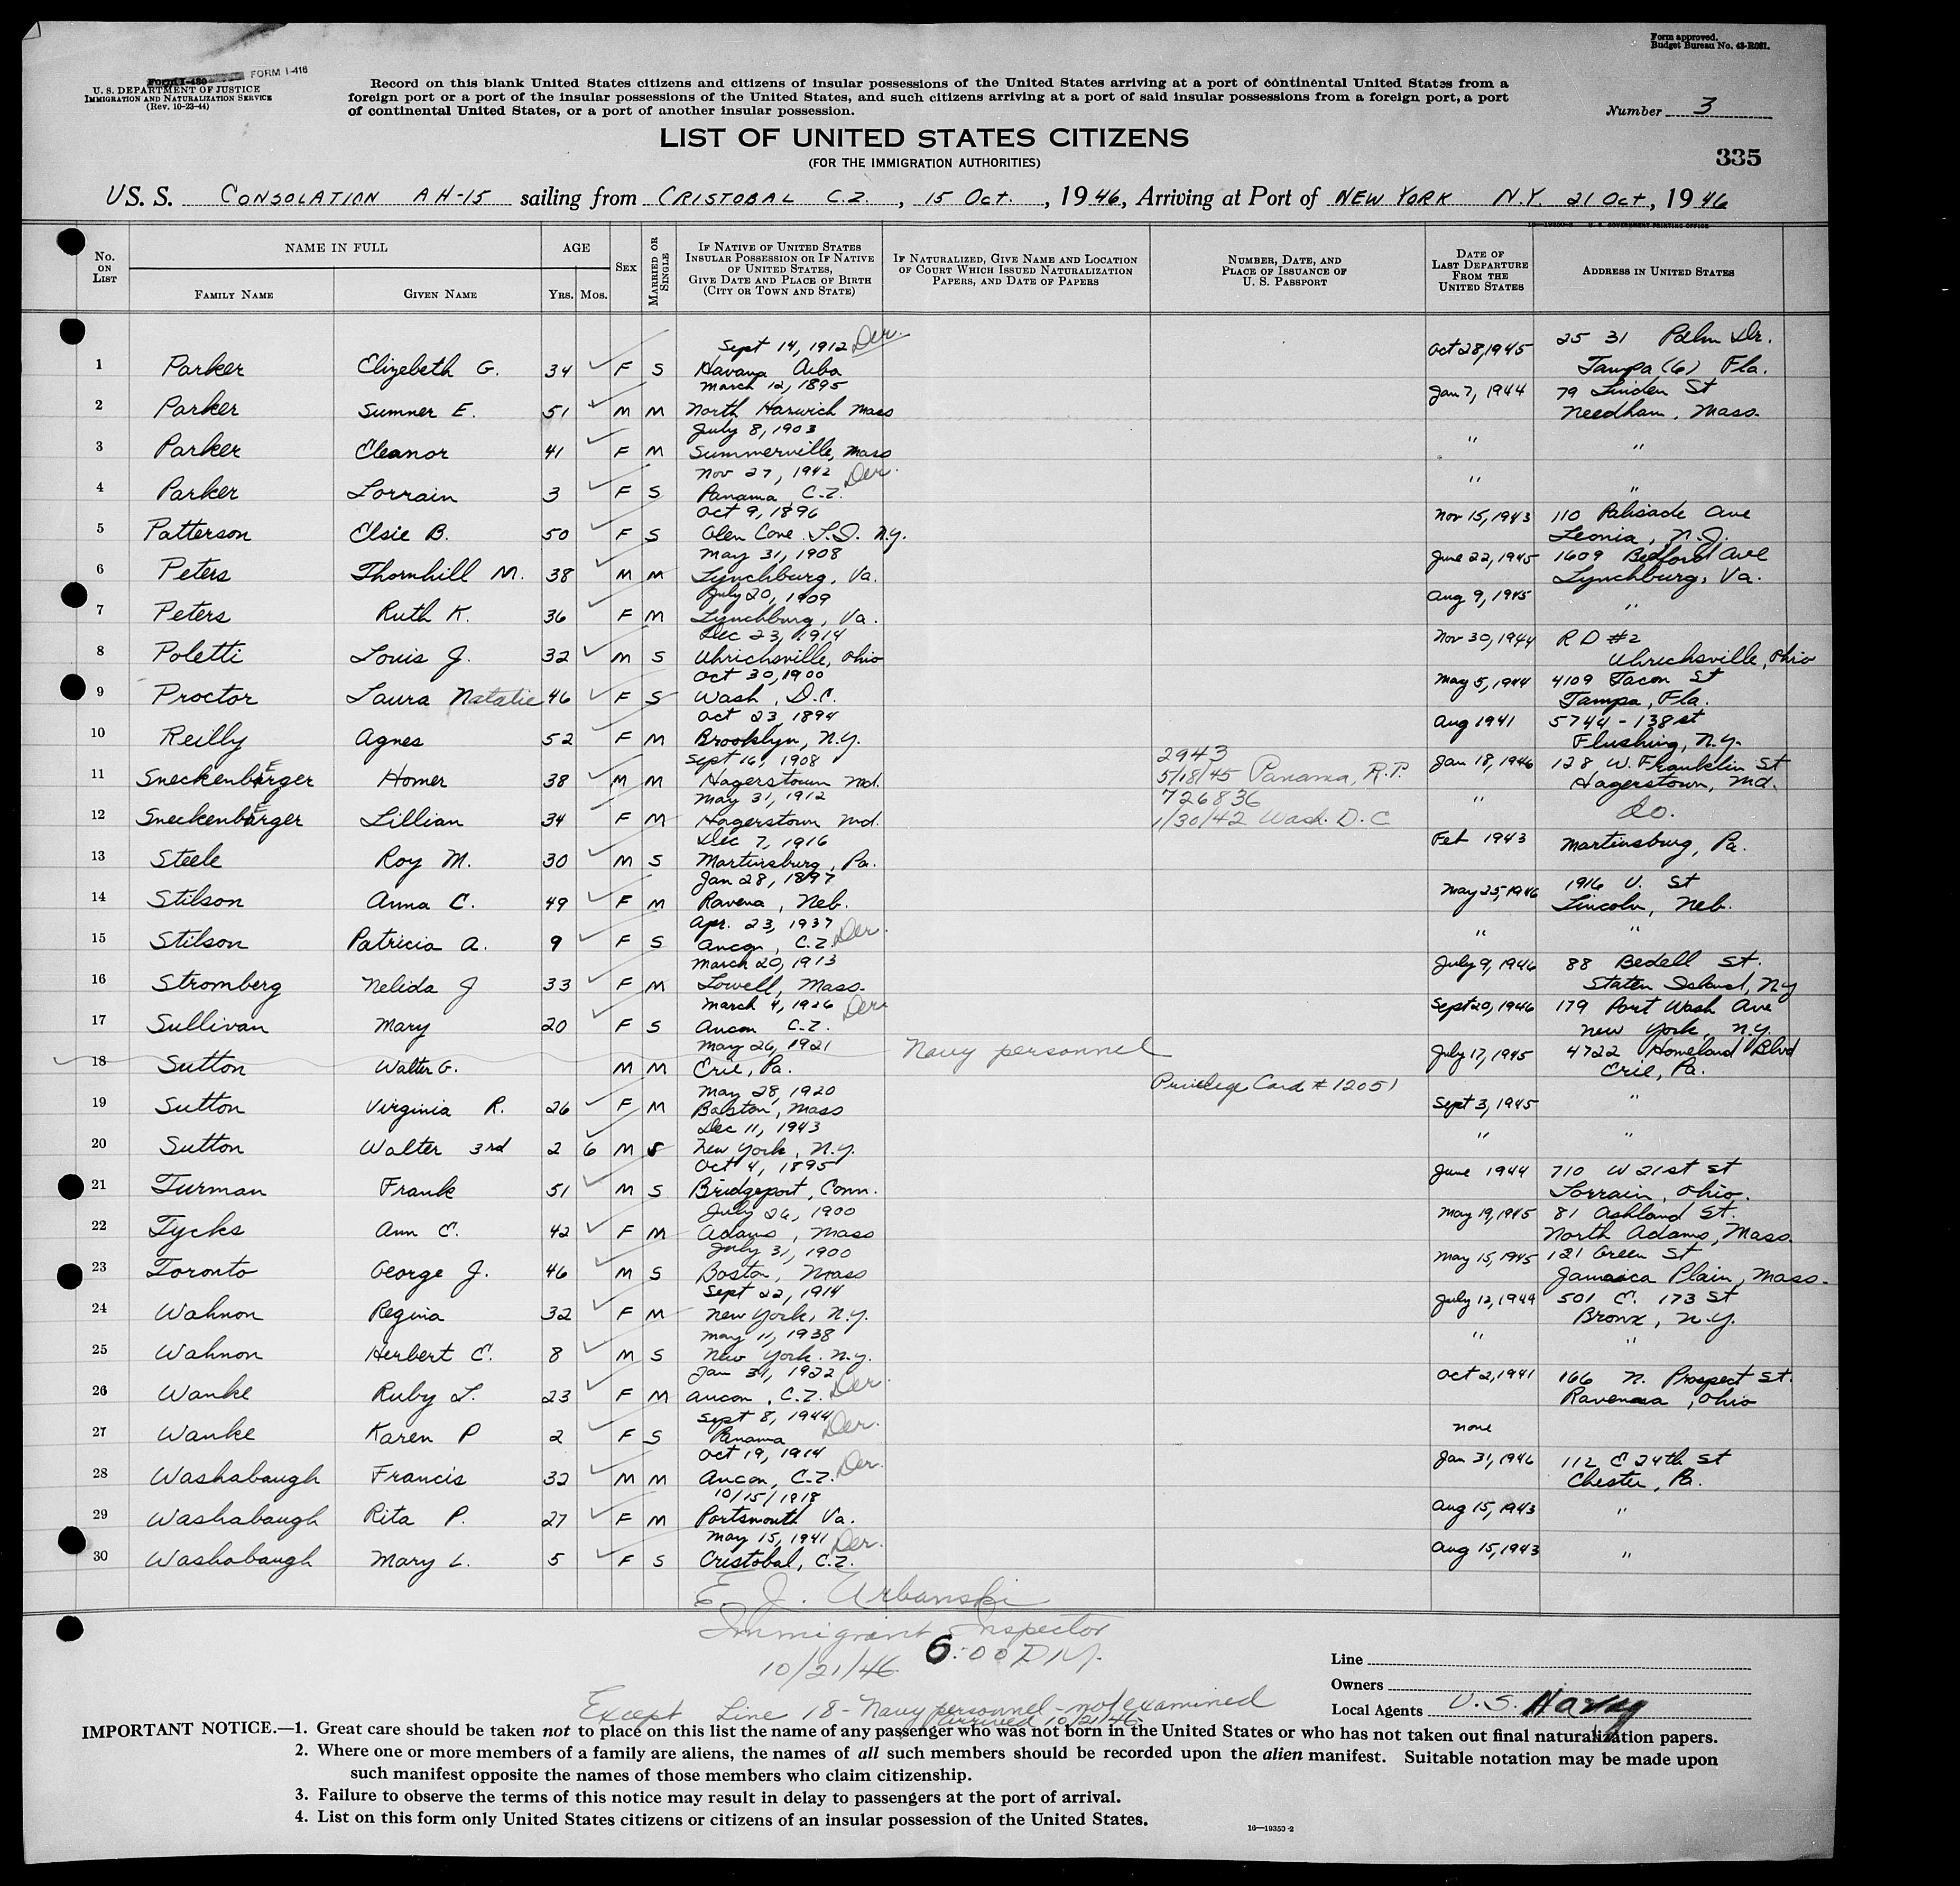 Form approved.
Budget Bureau No. 43-R081.
Form I-480 FORM I-416
U. S. DEPARTMENT OF JUSTICE
IMMIGRATION AND NATURALIZATION SERVICE
(Rev. 10-23-44)
Record on this blank United States citizens and citizens of insular possessions of the United States arriving at a port of continental United States from a
foreign port or a port of the insular possessions of the United States, and such citizens arriving at a port of said insular possessions from a foreign port, a port
of continental United States, or a port of another insular possession.
Number 3
LIST OF UNITED STATES CITIZENS
(FOR THE IMMIGRATION AUTHORITIES)
335
U.S. S. CONSOLATION AH-15 sailing from CRISTOBAL C.Z., 15 Oct., 1946, Arriving at Port of NEW YORK N.Y. 21 Oct, 1946
16—19350-2 U. S. GOVERNMENT PRINTING OFFICE
No. ON LIST
NAME IN FULL
FAMILY NAME
GIVEN NAME
AGE
YRS. MOS.
SEX
MARRIED OR SINGLE
IF NATIVE OF UNITED STATES INSULAR POSSESSION OR IF NATIVE OF UNITED STATES, GIVE DATE AND PLACE OF BIRTH (CITY OR TOWN AND STATE)
IF NATURALIZED, GIVE NAME AND LOCATION OF COURT WHICH ISSUED NATURALIZATION PAPERS, AND DATE OF PAPERS
NUMBER, DATE, AND PLACE OF ISSUANCE OF U. S. PASSPORT
DATE OF LAST DEPARTURE FROM THE UNITED STATES
ADDRESS IN UNITED STATES
1 Parker Elizebeth G. 34 F S Sept 14, 1912 Der. Havana Cuba Oct 28, 1945 25 31 Palm Dr. Tampa (6) Fla.
2 Parker Sumner E. 51 M M March 12, 1895 North Harwich Mass Jan 7, 1944 79 Linden St Needham, Mass.
3 Parker Eleanor 41 F M July 8, 1903 Summerville, Mass " "
4 Parker Lorrain 3 F S Nov 27, 1942 Der. Panama, C.Z. " "
5 Patterson Elsie B. 50 F S Oct 9, 1896 Glen Cove L.I. N.Y. Nov 15, 1943 110 Palisade Ave Leonia, N.J.
6 Peters Thornhill M. 38 M M May 31, 1908 Lynchburg, Va. June 22, 1945 1609 Bedford Ave Lynchburg, Va.
7 Peters Ruth K. 36 F M July 20, 1909 Lynchburg, Va. Aug 9, 1945 "
8 Poletti Louis J. 32 M S Dec 23, 1914 Uhrichsville, Ohio Nov 30, 1944 R D #2 Uhrichsville, Ohio
9 Proctor Laura Natalie 46 F S Oct 30, 1900 Wash, D.C. May 5, 1944 4109 Tacon St Tampa, Fla.
10 Reilly Agnes 52 F M Oct 23, 1894 Brooklyn, N.Y. Aug 1941 5744 - 138 st Flushing, N.Y.
11 Sneckenberger Homer 38 M M Sept 16, 1908 Hagerstown Md. 2943 5/18/45 Panama, R.P. Jan 18, 1946 128 W. Franklin St Hagerstown, Md.
12 Sneckenberger Lillian 34 F M May 31, 1912 Hagerstown Md. 726836 1/30/42 Wash. D.C " Do.
13 Steele Roy M. 30 M S Dec 7, 1916 Martinsburg, Pa. Feb 1943 Martinsburg, Pa.
14 Stilson Anna C. 49 F M Jan 28, 1897 Ravena, Neb. May 25, 1946 1916 U. St Lincoln, Neb.
15 Stilson Patricia A. 9 F S Apr. 23, 1937 Ancon, C.Z. Der. " "
16 Stromberg Nelida J 33 F M March 20, 1913 Lowell, Mass. July 9, 1946 88 Bedell St. Staten Island, NY
17 Sullivan Mary 20 F S March 4, 1926 Der. Ancon C.Z. Sept 20, 1946 179 Fort Wash Ave New York, N.Y.
18 Sutton Walter G. M M May 26, 1921 Erie, Pa. Navy personnel July 17, 1945 4722 Homeland Blvd Erie, Pa.
19 Sutton Virginia R. 26 F M May 28, 1920 Boston, Mass Privilege Card # 12051 Sept 3, 1945 "
20 Sutton Walter 3rd 2 6 M S Dec 11, 1943 New York, N.Y. " "
21 Turman Frank 51 M S Oct 4, 1895 Bridgeport, Conn. June 1944 710 W 21st St Lorrain, Ohio.
22 Tycks Ann E. 42 F M July 26, 1900 Adams, Mass May 19, 1945 81 Ashland St. North Adams, Mass.
23 Toronto George J. 46 M S July 31, 1900 Boston, Mass May 15, 1945 121 Green St Jamaica Plain, Mass.
24 Wahnon Regina 32 F M Sept 22, 1914 New York, N.Y. July 12, 1944 501 E. 173 St Bronx, N.Y.
25 Wahnon Herbert E. 8 M S May 11, 1938 New York. N.Y. " "
26 Wanke Ruby L. 23 F M Jan 31, 1922 Ancon, C.Z. Der. Oct 2, 1941 166 N. Prospect St. Ravenna, Ohio
27 Wanke Karen P 2 F S Sept 8, 1944 Panama Der. none
28 Washabaugh Francis 32 M M Oct 19, 1914 Ancon, C.Z. Der. Jan 31, 1946 112 E 24th St Chester, Pa.
29 Washabaugh Rita P. 27 F M 10/15/1918 Portsmouth Va. Aug 15, 1943 "
30 Washabaugh Mary L. 5 F S May 15, 1941 Der. Cristobal, C.Z. Aug 15, 1943 "
E. J. Urbanski
Immigrant Inspector
10/21/46 6:00 P.M.
Except Line 18 - Navy personnel - not examined
arrived 10/21/46.
Line
Owners
Local Agents U.S. Navy
IMPORTANT NOTICE.—1. Great care should be taken not to place on this list the name of any passenger who was not born in the United States or who has not taken out final naturalization papers.
2. Where one or more members of a family are aliens, the names of all such members should be recorded upon the alien manifest. Suitable notation may be made upon
such manifest opposite the names of those members who claim citizenship.
3. Failure to observe the terms of this notice may result in delay to passengers at the port of arrival.
4. List on this form only United States citizens or citizens of an insular possession of the United States.
16—19350-2